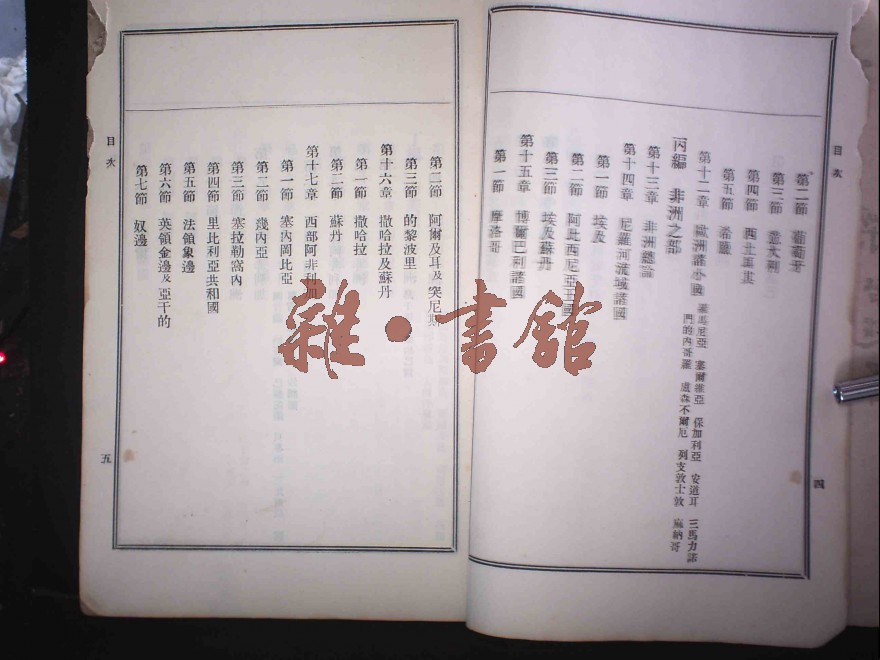 目次
第二節 葡萄牙
第三節 意大利
第四節 西土耳其
第五節 希臘
第十二章 歐洲諸小國 羅馬尼亞 塞爾維亞 保加利亞 安道耳 三馬力諾
們的內哥羅 盧森不爾厄 列支敦士敦 麻納哥
丙編 非洲之部
第十三章 非洲總論
第十四章 尼羅河流域諸國
第一節 埃及
第二節 阿比西尼亞王國
第三節 埃及蘇丹
第十五章 博爾巴利諸國
第一節 摩洛哥
四
目次
第二節 阿爾及耳及突尼斯
第三節 的黎波里
第十六章 撒哈拉及蘇丹
第一節 撒哈拉
第二節 蘇丹
第十七章 西部阿非利加
第一節 塞內岡比亞
第二節 幾內亞
第三節 塞拉勒窩內
第四節 里比利亞共和國
第五節 法領象邊
第六節 英領金邊及亞干的
第七節 奴邊
五
雜·書館